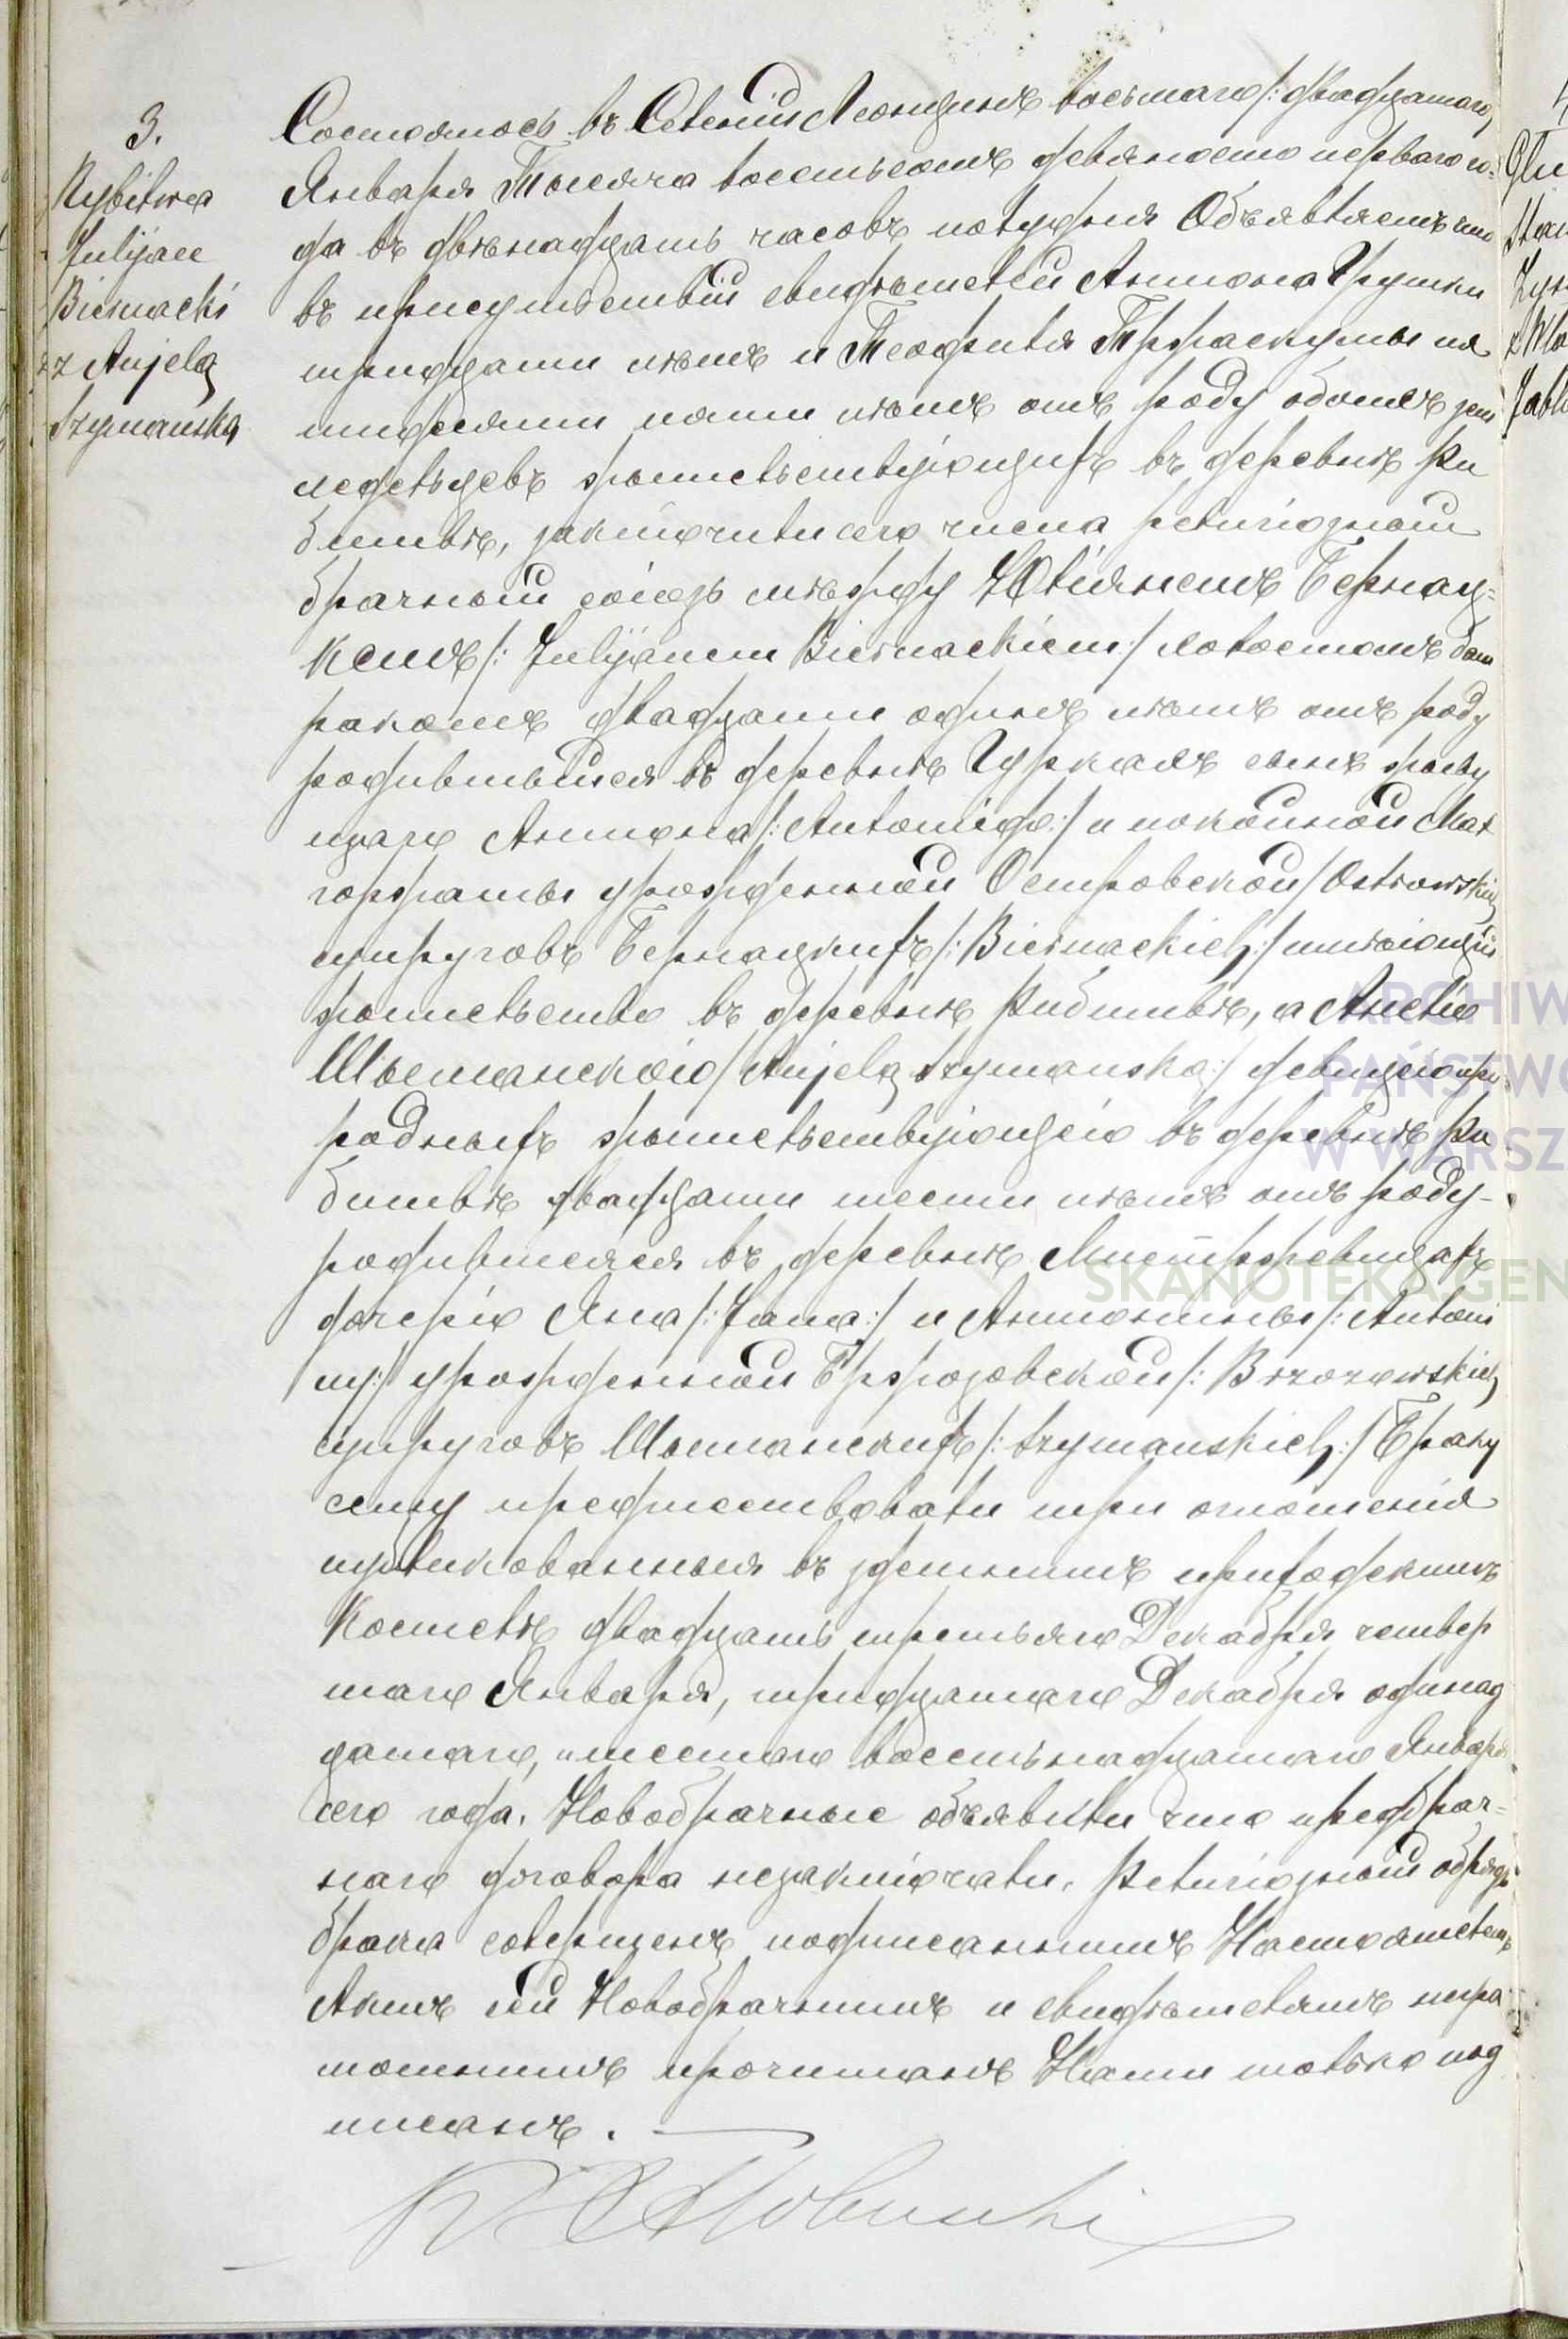 3.
Rybitwa
Julijan
Biernacki
z Anjelą
Szymańską
Состоялось въ Селеніи Леонцинѣ восьмаго /:двадцатаго,
Января Тысяча восемьсотъ девяносто перваго го-
да въ двѣнадцать часовъ полудня Объявляемъ что
въ присутствіи свидѣтелей Антона
тридцати лѣтъ и Теофиля пя
тидесяти пяти лѣтъ отъ роду обоихъ зем
ледѣльцевъ жительствующихъ въ деревнѣ Ри
битвѣ, заключили сего числа религіозный
брачный союзъ между Юліяномъ Бернац-
кемъ /:Julijanem Biernackiem:/ холостомъ бат
ракомъ двадцати одинъ лѣтъ отъ роду
родившыйся въ деревнѣ Гуркахъ сынъ живу
щаго Антона /:Antoniego:/ и покойной Мал
горжаты урожденной Островской /Ostrowskich
супруговъ Бернацкихъ /:Biernackich:/ имѣющій
жительство въ деревнѣ Рибитвѣ, а Анелію
Шыманскою /Anjelą Szymańską:/ девицею при
родныхъ жительствующею въ деревнѣ Ри
битвѣ двадцати шести лѣтъ отъ роду-
родившеяся въ деревнѣ
дочерію Яна /:Jana:/ и Антонины /:Antoni
ny:/ урожденной Бржозовской /:Brzozowskich
супруговъ Шыманскихъ /:Szymańskich:/ Браку
сему предшествовали три оглошенія
публикованныя въ здешнимъ приходскимъ
Костелѣ двадцать третьяго Декабря четвер
таго Января, тридцатаго Декабря одинад
цатаго, и шестаго восемьнадцатаго Января
сего года. Новобрачные объявили что предбрач-
наго договора незаключали, Религіозный обрядъ
брака совершенъ подписаннымъ Настоятелемъ
Актъ сей Новобрачнымъ и свидѣтелямъ негра
мотнымъ прочитанъ Нами только под
писанъ.
ARCHIW
PAŃSTWO
W WARSZ
SKANOTEKA.GEN